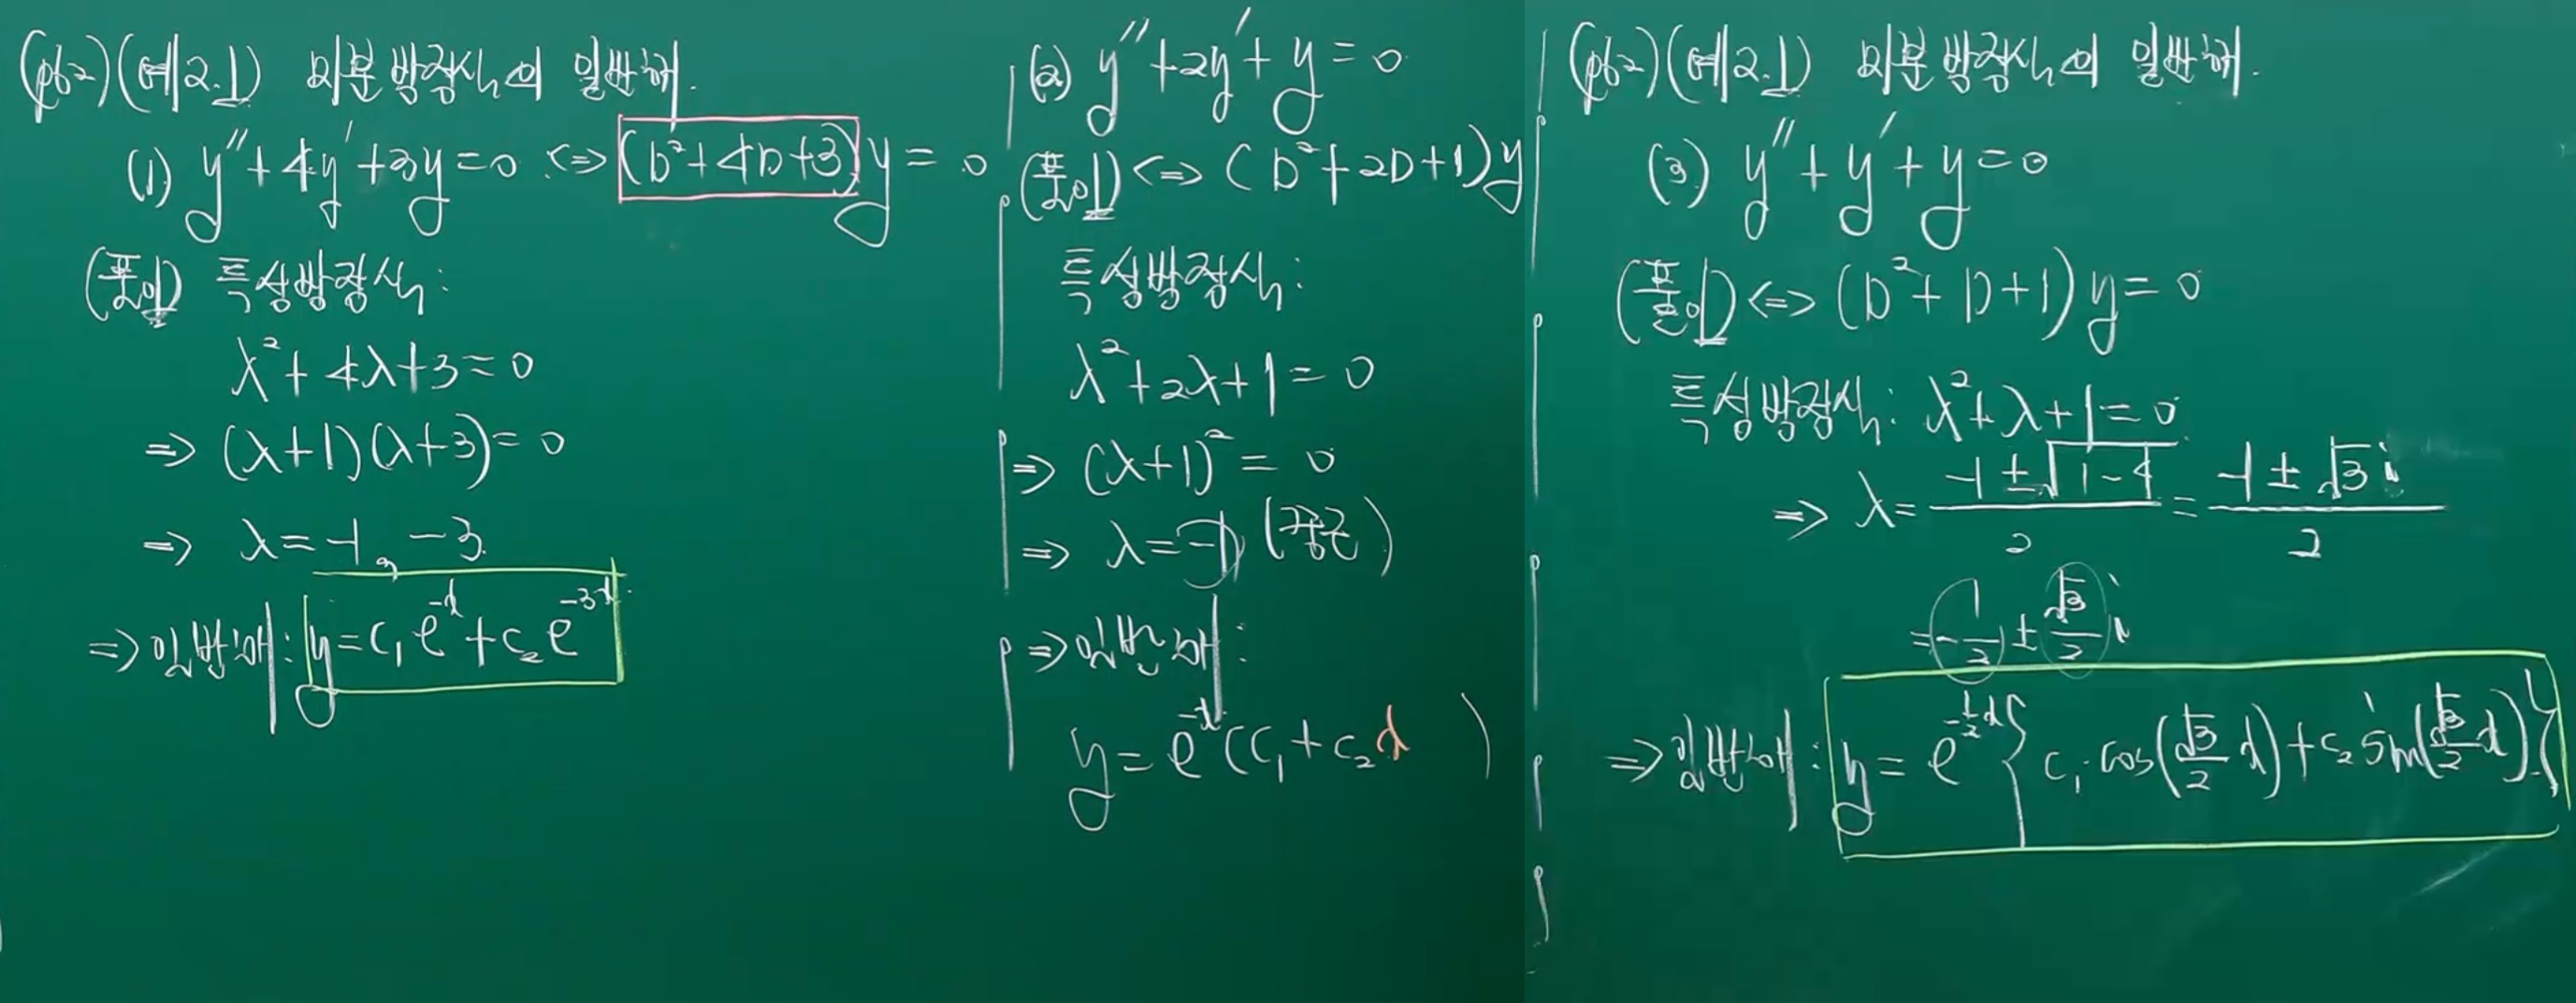 (p62)(예2.1) 미분방정식의 일반해.
(1) y''+4y'+3y=0 <=> (D²+4D+3)y=0
(풀이) 특성방정식:
λ²+4λ+3=0
=> (λ+1)(λ+3)=0
=> λ=-1, -3.
=> 일반해: y=c₁e^{-x}+c₂e^{-3x}.
(2) y''+2y'+y=0
(풀이) <=> (D²+2D+1)y
특성방정식:
λ²+2λ+1=0
=> (λ+1)²=0
=> λ=-1 (중근)
=> 일반해:
y=e^{-x}(c₁+c₂x )
(p62)(예2.1) 미분방정식의 일반해.
(3) y''+y'+y=0
(풀이) <=> (D²+D+1)y=0
특성방정식: λ²+λ+1=0.
=> λ=\frac{-1±√(1-4)}{2}=\frac{-1±√3 i}{2}
=-\frac{1}{2}±\frac{√3}{2}i
=> 일반해: y=e^{-\frac{1}{2}x}{c₁cos(\frac{√3}{2}x)+c₂sin(\frac{√3}{2}x)}